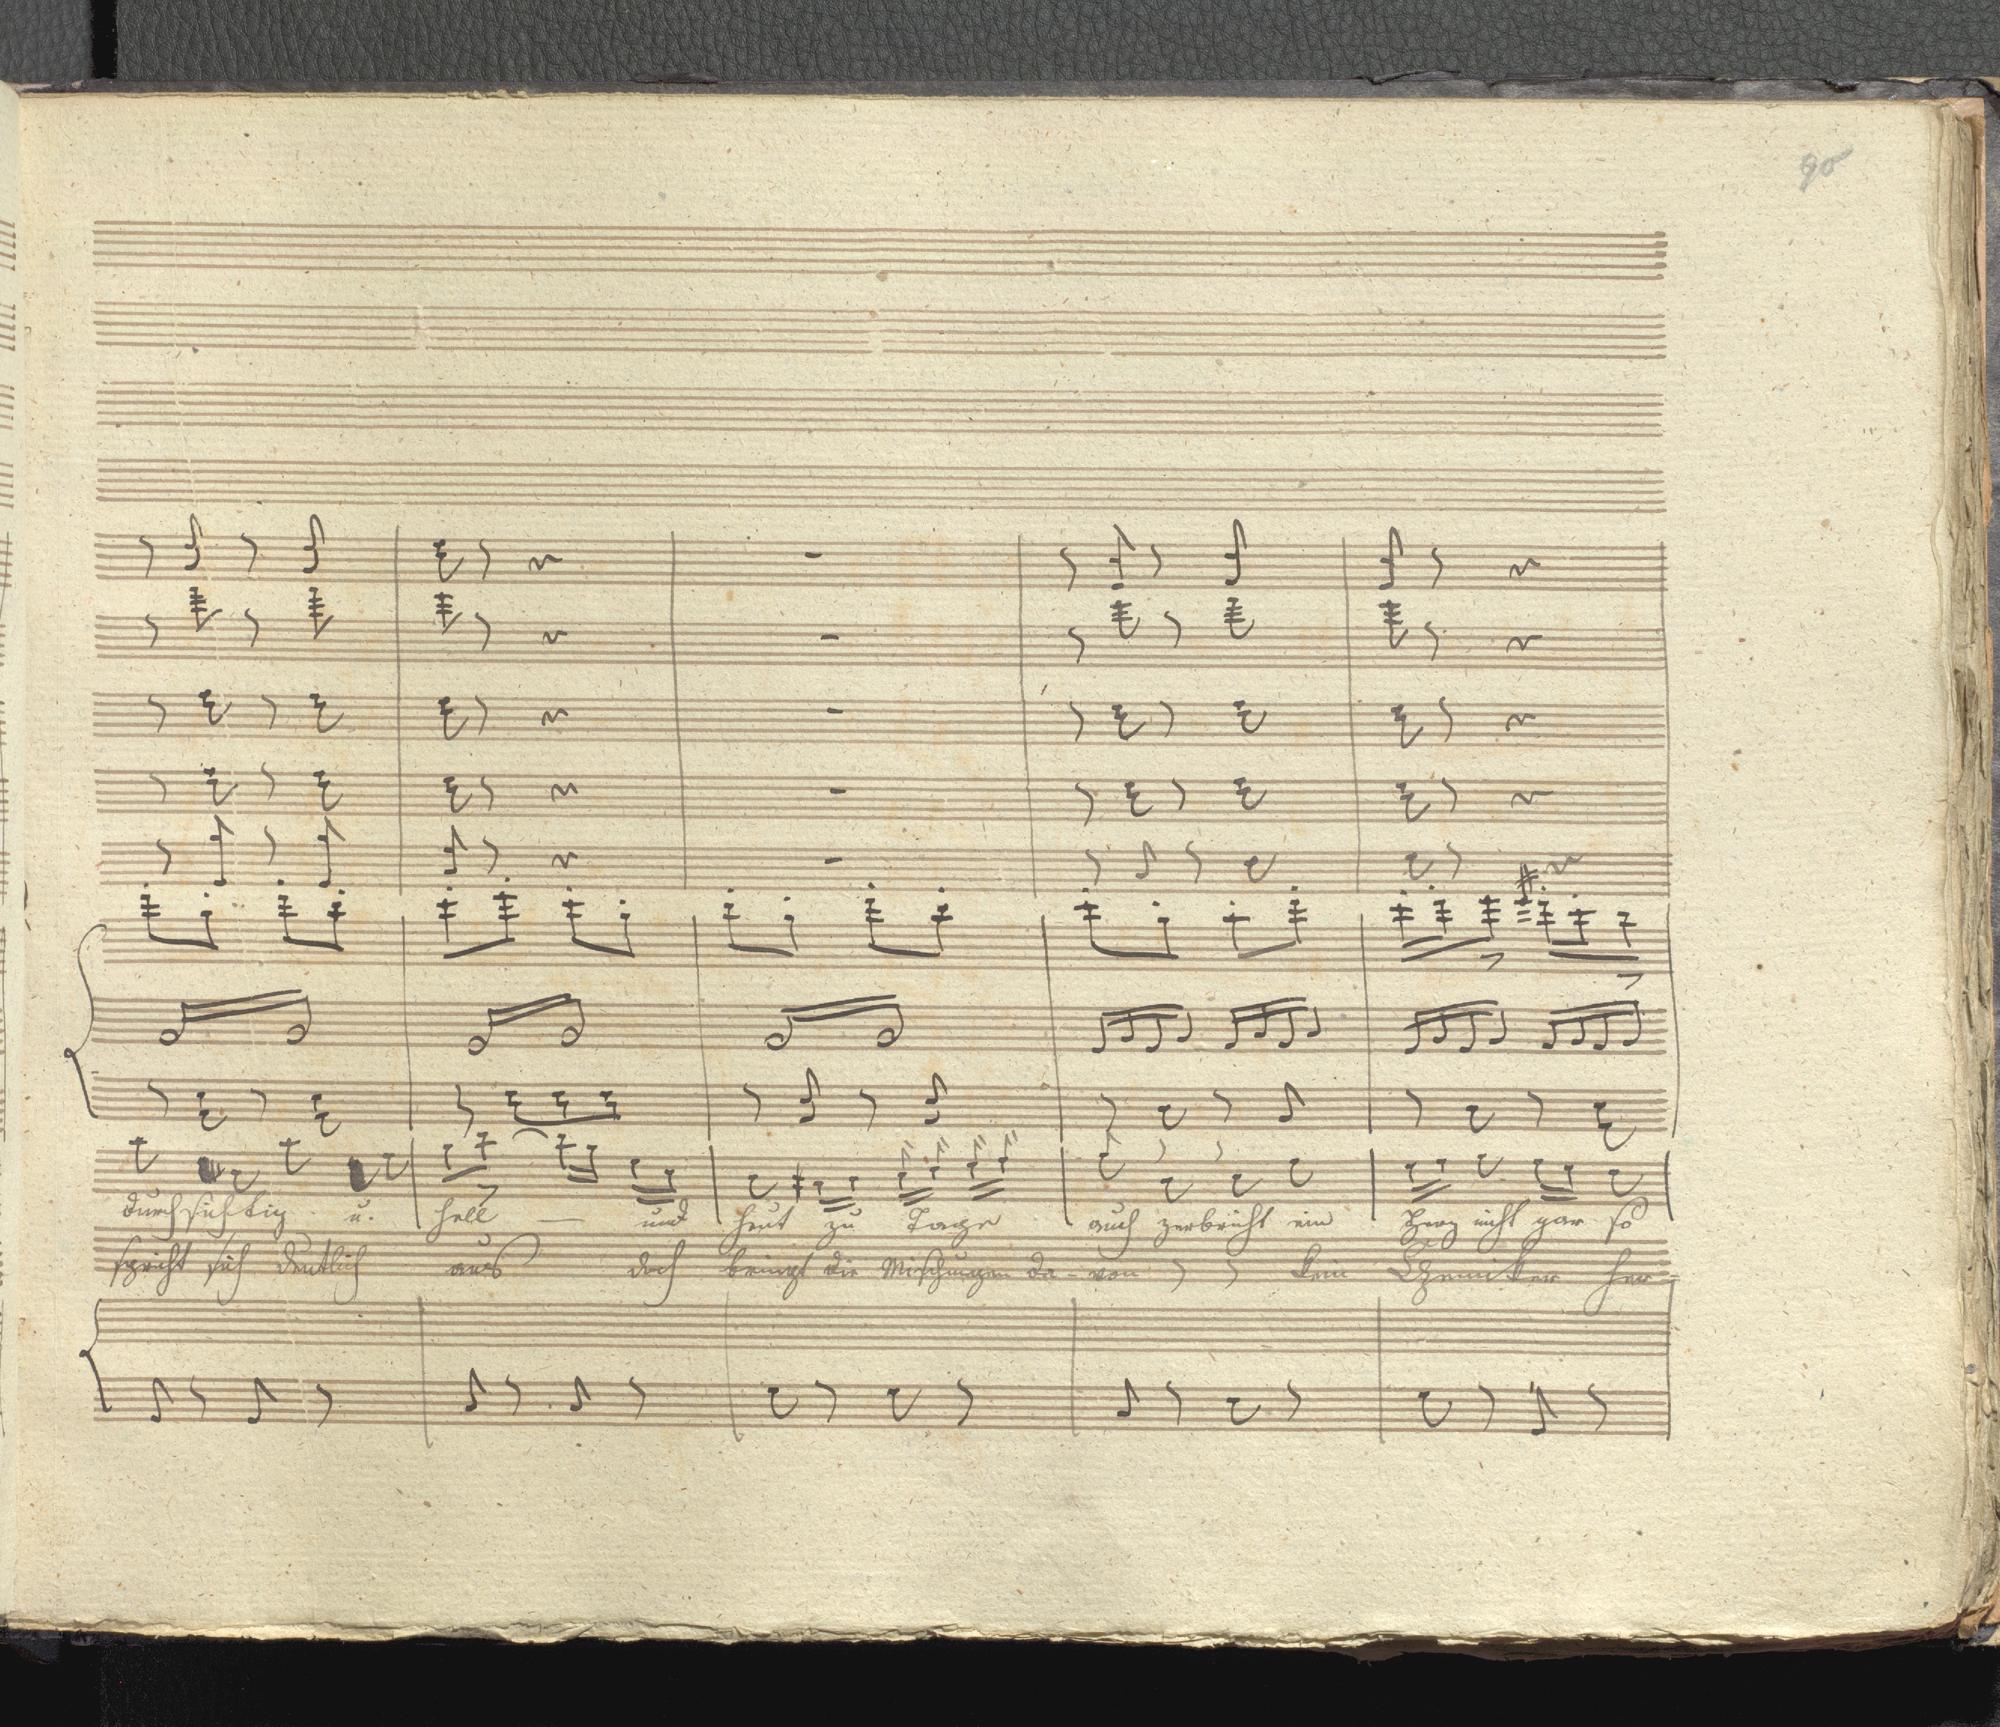 90
durchsichtig u. hell — und heut zu Tage auch zerbricht ein Herz nicht gar so
spricht sich deutlich aus doch bringt die Mischungen da-von kein Chemiker her=